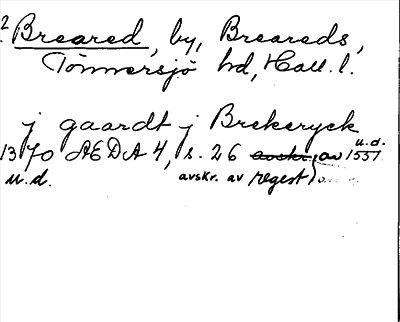 2 Breared, by, Breareds,
Tönnersjö hd, Hall. l.
j gaardt j Brekeryck
1370 AEDA 4, s. 26 avskr. av u.d. 1551
u.d. avskr. av regest